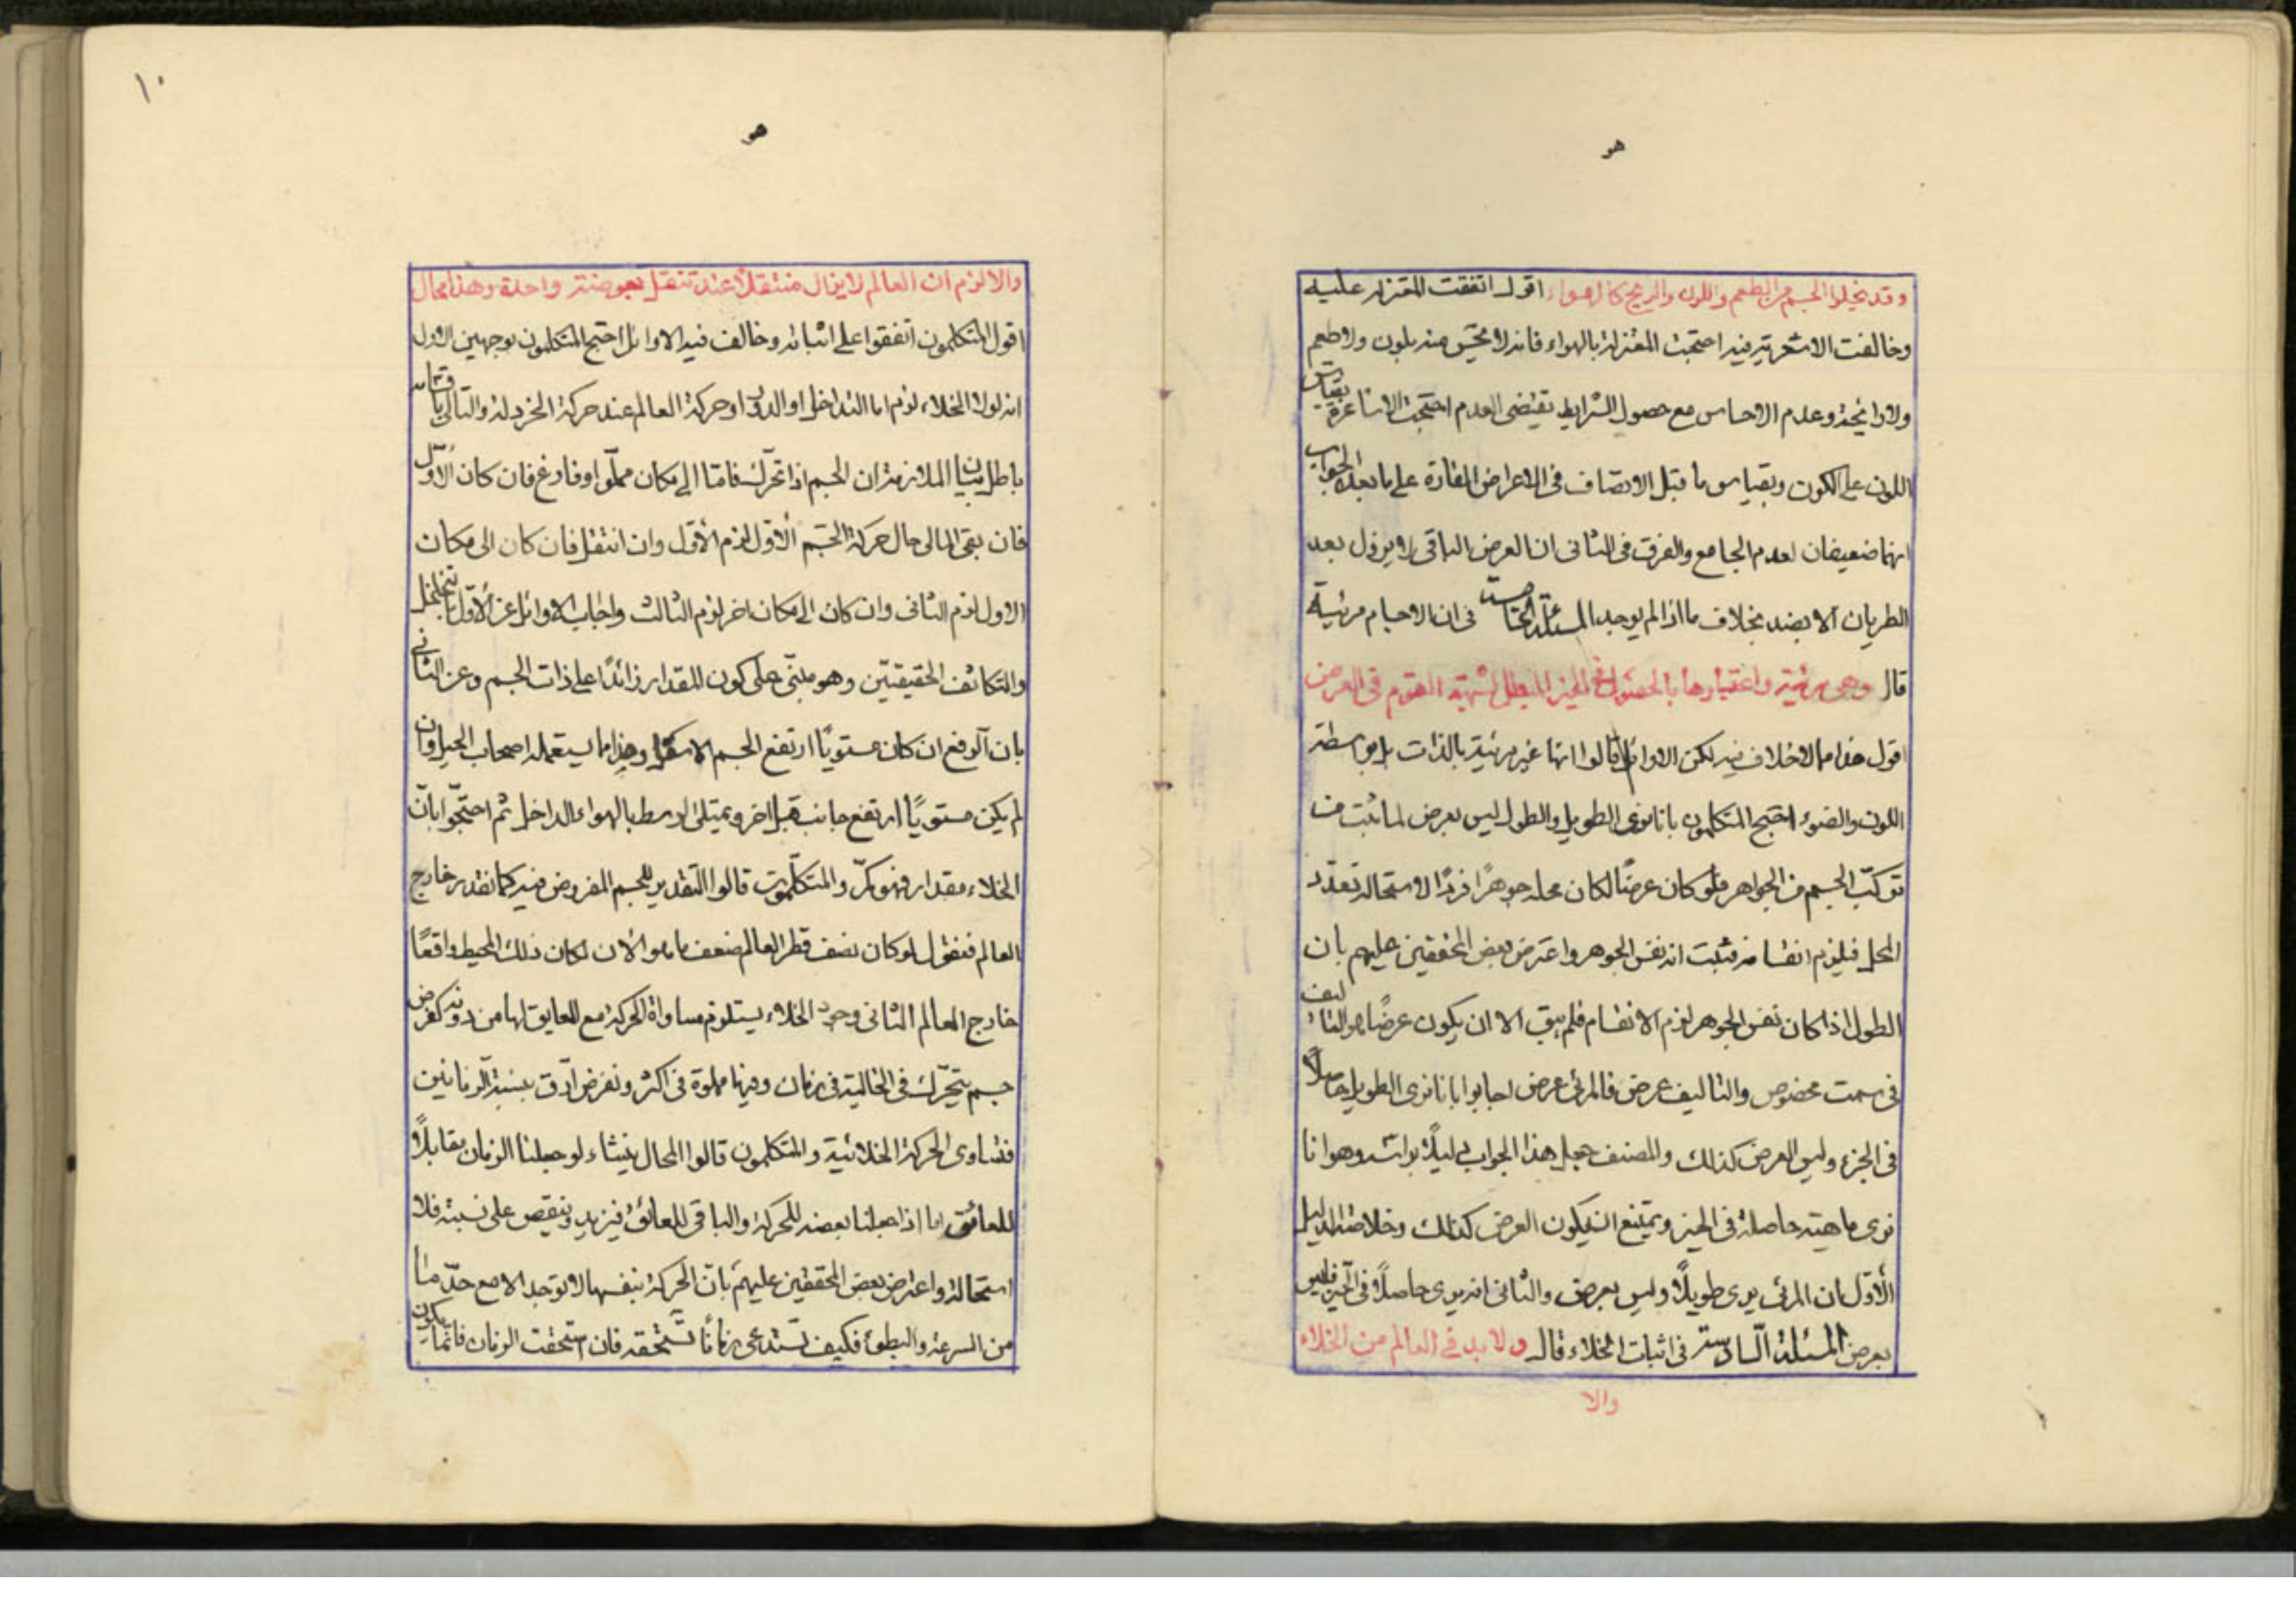 هو
وقد يخلوا الجسم من الطعم واللون والريح كالهواء اقول اتفقت المعتزله عليه
وخالفت الاشعرية فيه احتجت المعتزلة بالهواء فانه لا يحس منه بلون ولا طعم
ولا رايحة وعدم الاحساس مع حصول الشرايط يقتضى العدم احتجت الاشاعرة بقياس
اللون على الكون وبقياس ما قبل الاتصاف فى الاعراض القارة على ما بعده الجواب
انهما ضعيفان لعدم الجامع والفرق فى الثانى ان العرض الباقى لا يزول بعد
الطريان الا بضد بخلاف ما اذا لم يوجد المسئلة الخامسة فى ان الاجسام مرئية
قال وهى مرئية واعتبارها بالحصول فى الحيز المبطل لشبهة القوم فى العرض
اقول هذا مما لا خلاف فيه لكن الاوائل قالوا انها غير مرئية بالذات بل بواسطة
اللون والضوء احتج المتكلمون بانا نرى الطويل والطول ليس بعرض لما ثبت من
تركب الجسم من الجواهر فلو كان عرضًا لكان محله جوهرًا فردًا لاستحالة تعدد
المحل فيلزم انقسامه فثبت انه نفس الجوهر واعترض بعض المحققين عليهم بان
الطول اذا كان نفس الجوهر لزم الانقسام فلم يبق الا ان يكون عرضًا هو التاليف
فى سمت مخصوص والتاليف عرض فالمرئى عرض اجابوا بانا نرى الطويل حاصلًا
فى الحيز وليس العرض كذلك والمصنف جعل هذا الجواب دليلًا براسه وهو انا
نرى ماهيته حاصلة فى الحيز ويمتنع ان يكون العرض كذلك وخلاصة الدليل
الأوّل ان المرئى يرى طويلًا وليس بعرض والثانى انه يرى حاصلًا فى الحيز فليس
بعرض المسئلة السّادسة فى اثبات الخلاء قال ولا بد فى العالم من الخلاء
والا
١٠
هو
والا لزم ان العالم لا يزال منتقلًا عند تنقل بعوضة واحدة وهذا محال
اقول المتكلمون اتفقوا على اثباته وخالف فيه الاوائل احتج المتكلمون بوجهين الاول
انه لولا الخلاء لزم اما التداخل او الدور او حركة العالم عند حركة الخردلة والتالى باقسامه
باطل بيان الملازمة ان الجسم اذا تحرّك فامّا الى مكان مملّو او فارغ فان كان الأوّل
فان بقى المالى حال حركة الجسم الأوّل لزم الأوّل وان انتقل فان كان الى مكان
الاول لزم الثانى وان كان الى مكان اخر لزم الثالث واجاب الاوائل عن الأوّل بالتخلخل
والتكاثف الحقيقيّين وهو مبنّى على كون المقدار زائدًا على ذات الجسم وعن الثانى
بان الرفع ان كان مستويًا ارتفع الجسم الاسفل وهذا مما يستعمله اصحاب الحيل وان
لم يكن مستويًا ارتفع جانب قبل اخر ويمتلئ الوسط بالهواء الداخل ثم احتجّوا بانّ
الخلاء مقدار فهو كمّ والمتكلّمون قالوا التقدير للجسم المفروض فيه كما نقدر خارج
العالم فنقول لو كان نصف قطر العالم ضعف ما هو الأن لكان ذلك المحيط واقعًا
خارج العالم الثانى وجود الخلاء يستلزم مساواة الحركة مع العايق لها من دونه كفرض
جسم يتحرّك فى الخالية فى زمان وفيها مملوة فى اكثر ونفرض ارّق بنسبة الزمانين
فتساوى الحركة الخلائية والمتكلمون قالوا المحال ينشاء لو جعلنا الزمان مقابلًا
للعائق اما اذا جعلنا بعضه للحركة والباقى للعائق فيزيد وينقص على نسبته فلا
استحالة واعترض بعض المحققين عليهم بانّ الحركة بنفسها لا توجد الا مع حدّ ما
من السرعة والبطوء فكيف تستدعى زمانًا تستحقه فان استحقت الزمان فانما يكون